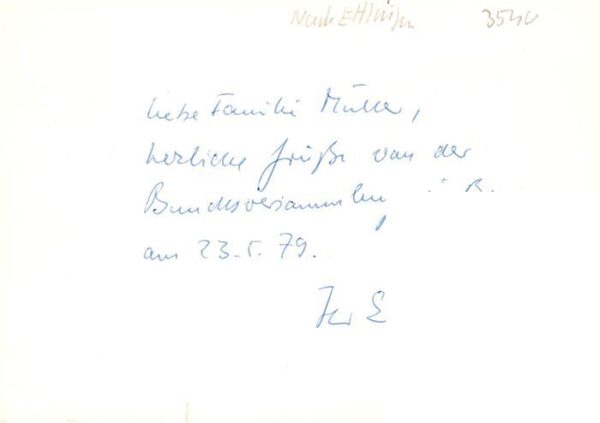 Nach Ettlingen 3540
Liebe Familie Müller,
herzliche Grüße von der
Bundesversammlung
am 23.5.79.
Ihr E